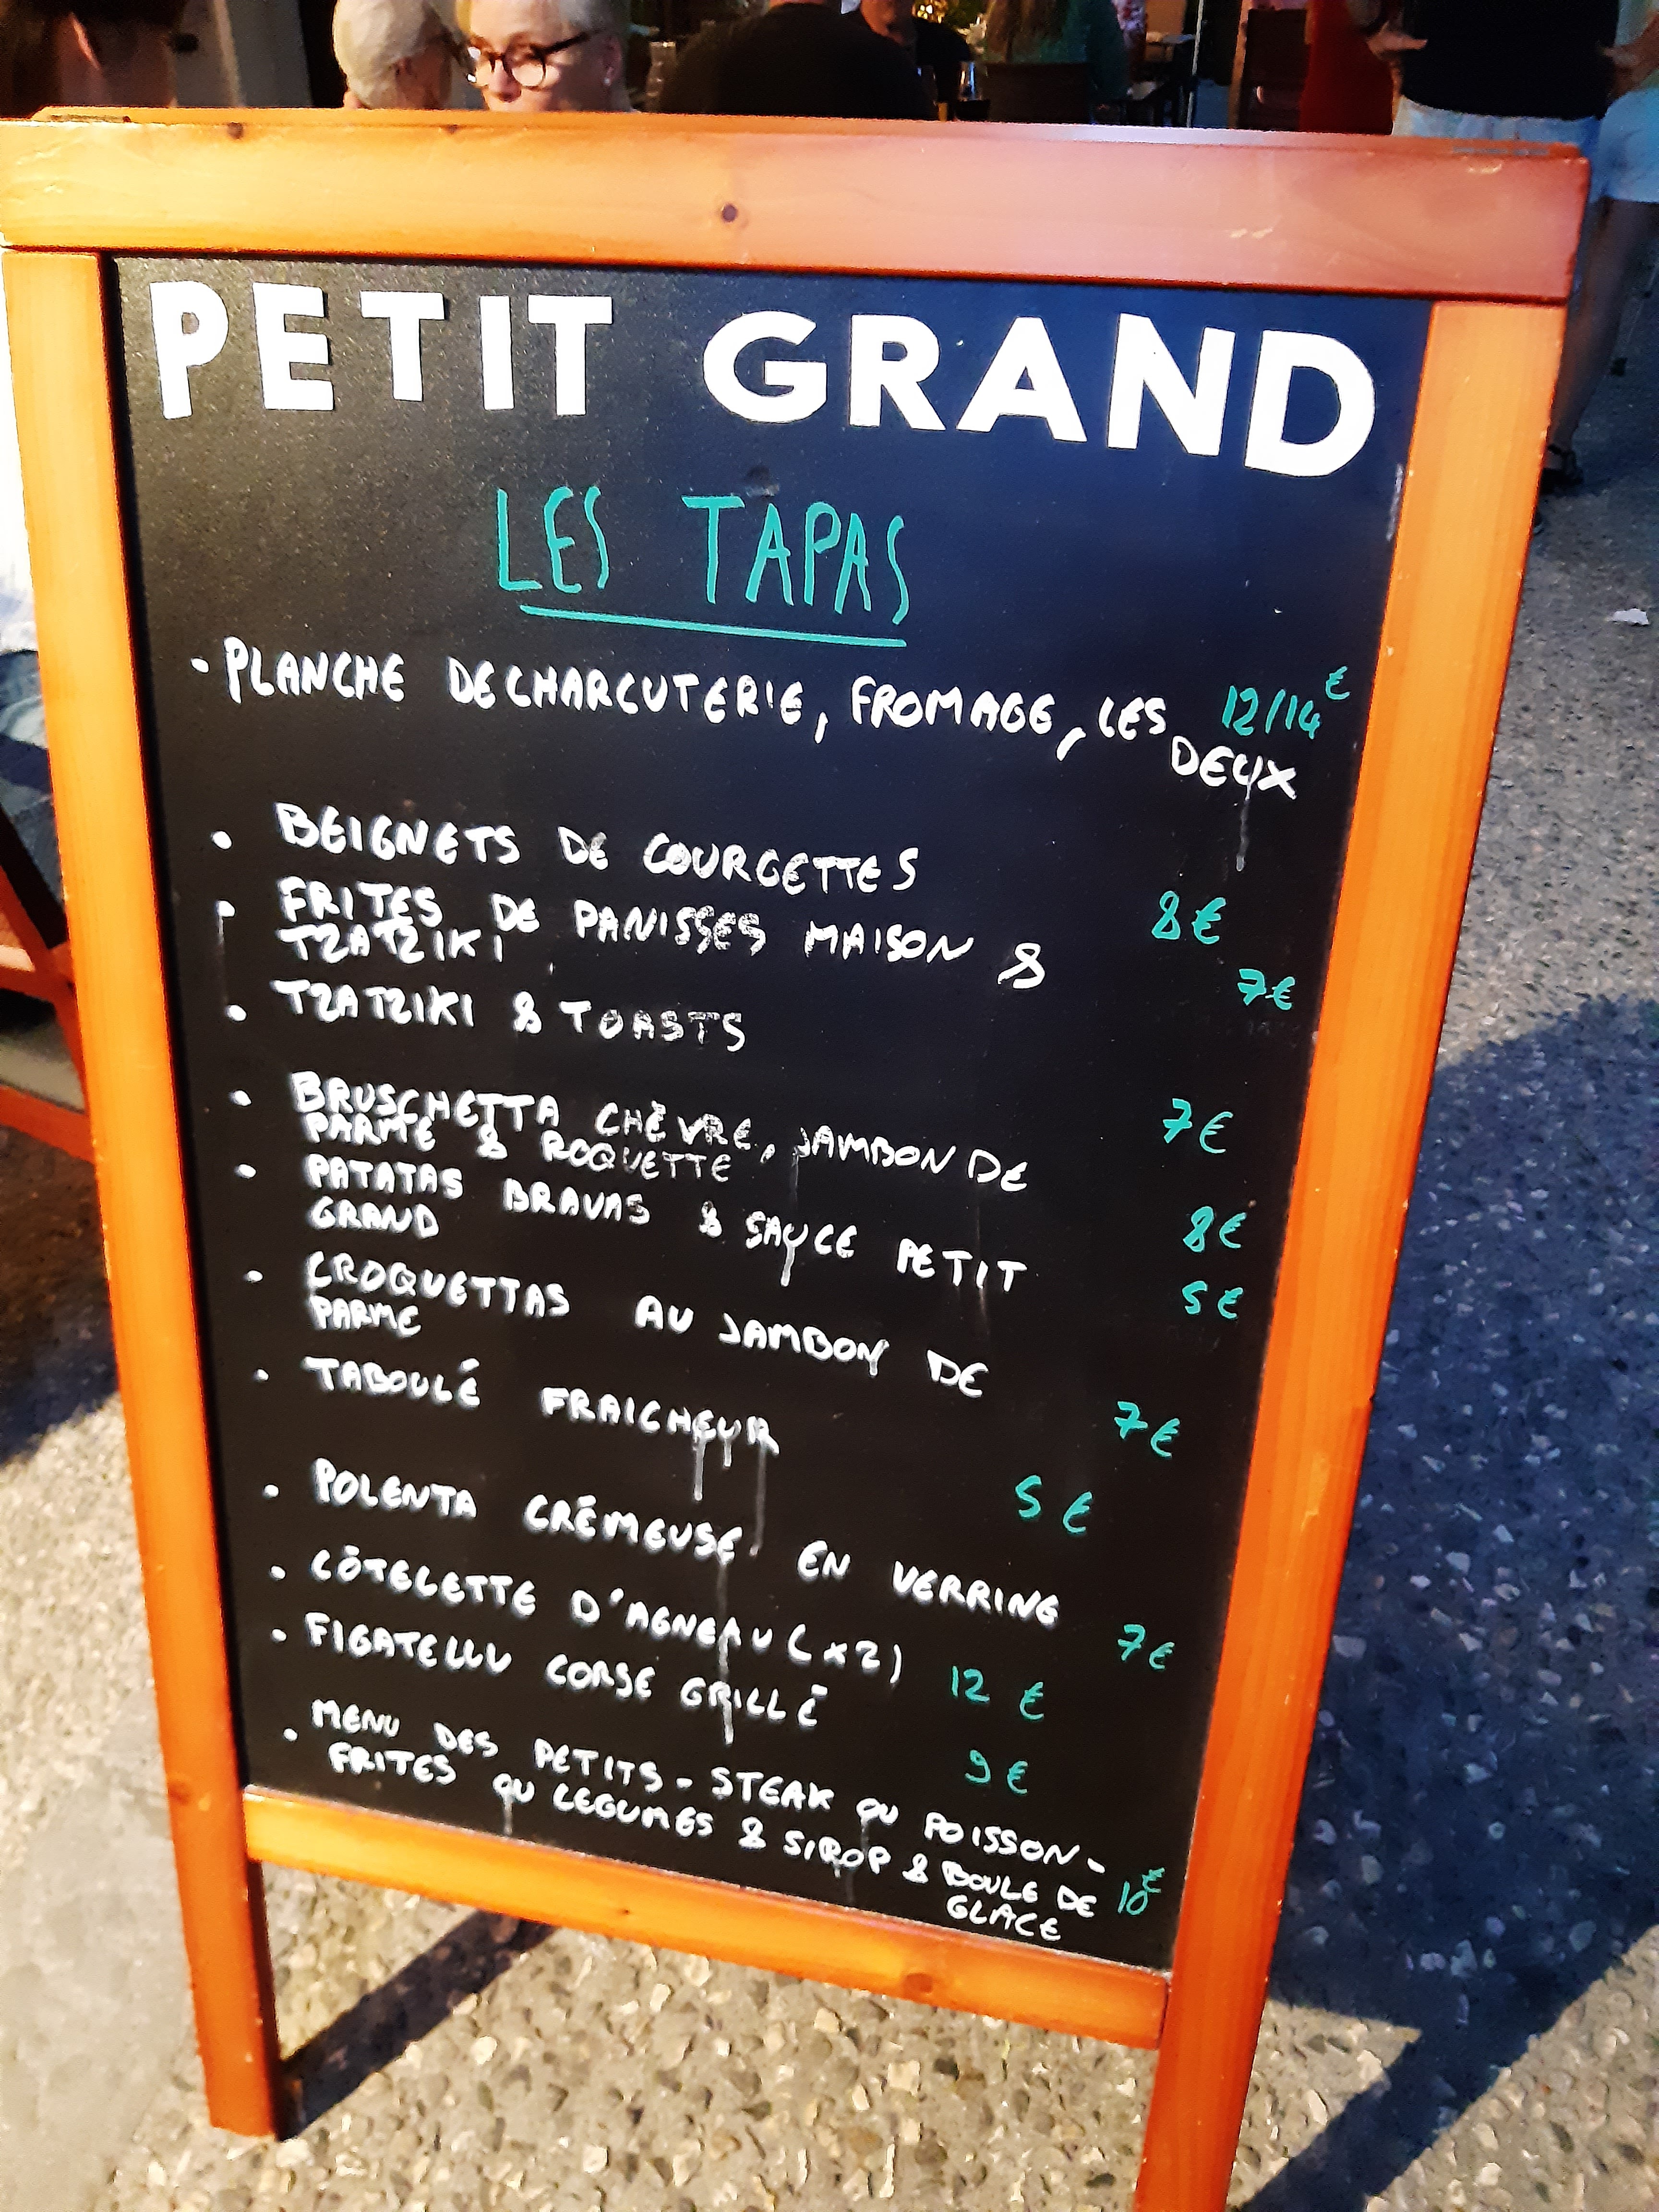 PETIT GRAND
LES TAPAS
- PLANCHE DE CHARCUTERIE, FROMAGE, LES 12/14€
DEUX
• BEIGNETS DE COURGETTES 8€
• FRITES DE PANISSES MAISON &
TZATZIKI 7€
• TZATZIKI & TOASTS 7€
• BRUSCHETTA CHÈVRE, JAMBON DE
PARME & ROQUETTE 8€
• PATATAS BRAVAS & SAUCE PETIT
GRAND 5€
• CROQUETTAS AU JAMBON DE
PARME 7€
• TABOULÉ FRAICHEUR 5€
• POLENTA CRÉMEUSE EN VERRINE 7€
• CÔTELETTE D'AGNEAU (x2) 12€
• FIGATELLU CORSE GRILLÉ 9€
• MENU DES PETITS - STEAK OU POISSON -
FRITES OU LEGUMES & SIROP & BOULE DE 10€
GLACE